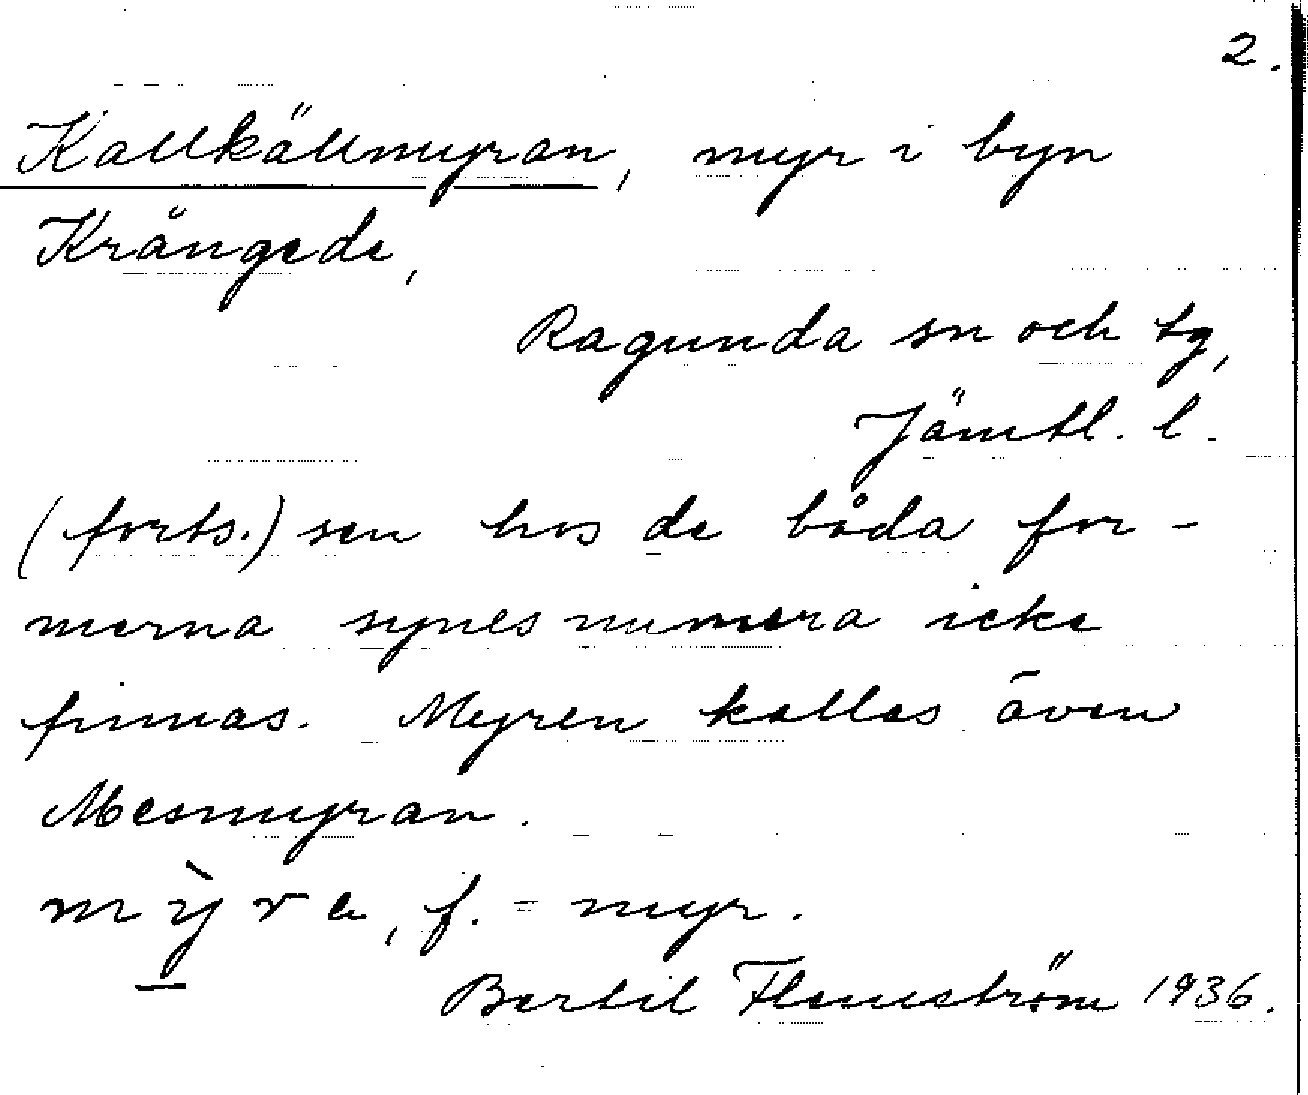 2.
Kallkällmyran, myr i byn
Krångede,
Ragunda sn och tg,
Jämtl. l.
(forts.) sen hos de båda for-
merna synes numera icke
finnas. Myren kallas även
Mesmyran.
m ỳ r a, f. = myr.
Bertil Flemström 1936.